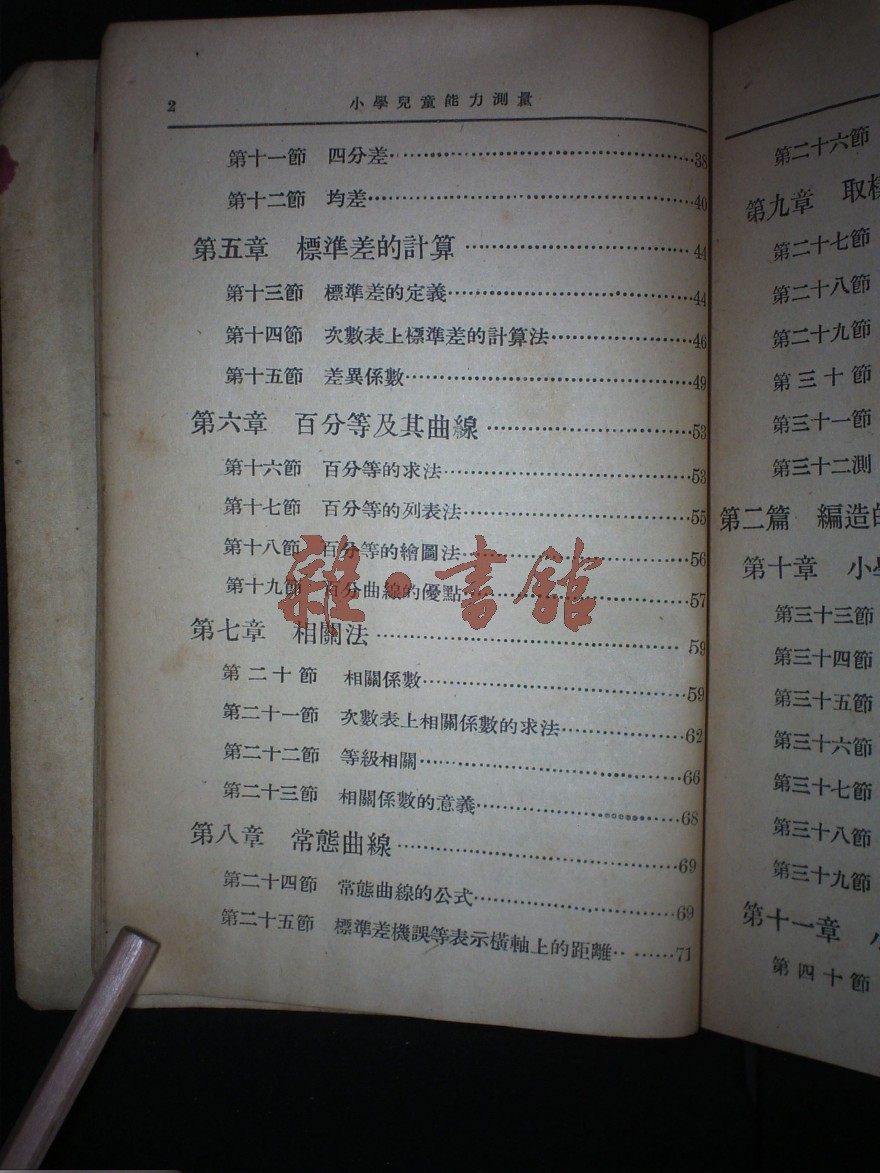 2 小學兒童能力測量
第十一節 四分差……38
第十二節 均差……40
第五章 標準差的計算……44
第十三節 標準差的定義……44
第十四節 次數表上標準差的計算法……46
第十五節 差異係數……49
第六章 百分等及其曲線……53
第十六節 百分等的求法……53
第十七節 百分等的列表法……55
第十八節 百分等的繪圖法……56
第十九節 百分曲線的優點……57
第七章 相關法……59
第二十節 相關係數……59
第二十一節 次數表上相關係數的求法……62
第二十二節 等級相關……66
第二十三節 相關係數的意義……68
第八章 常態曲線……69
第二十四節 常態曲線的公式……69
第二十五節 標準差機誤等表示橫軸上的距離……71
雜·書館
第二十六節
第九章 取
第二十七節
第二十八節
第二十九節
第三十節
第三十一節
第三十二測
第二篇 編造的
第十章 小
第三十三節
第三十四節
第三十五節
第三十六節
第三十七節
第三十八節
第三十九節
第十一章
第四十節